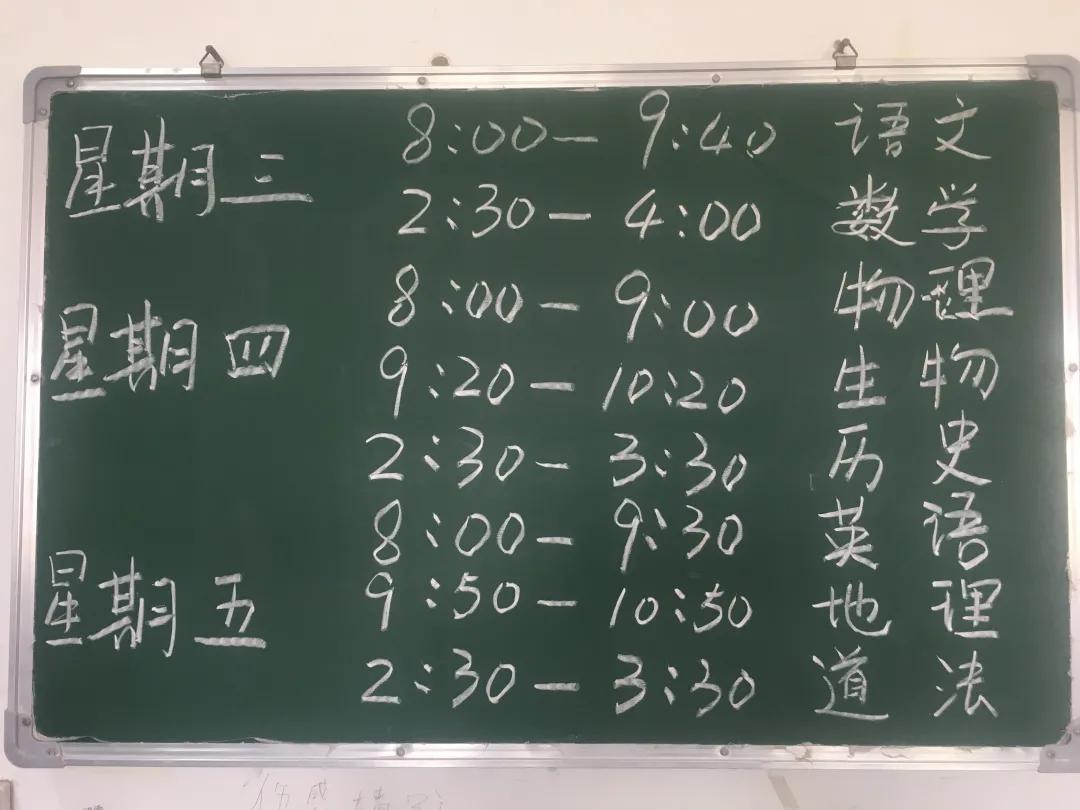 星期三 8:00— 9:40 语文
2:30— 4:00 数学
8:00— 9:00 物理
星期四 9:20— 10:20 生物
2:30— 3:30 历史
8:00— 9:30 英语
星期五 9:50— 10:50 地理
2:30— 3:30 道法